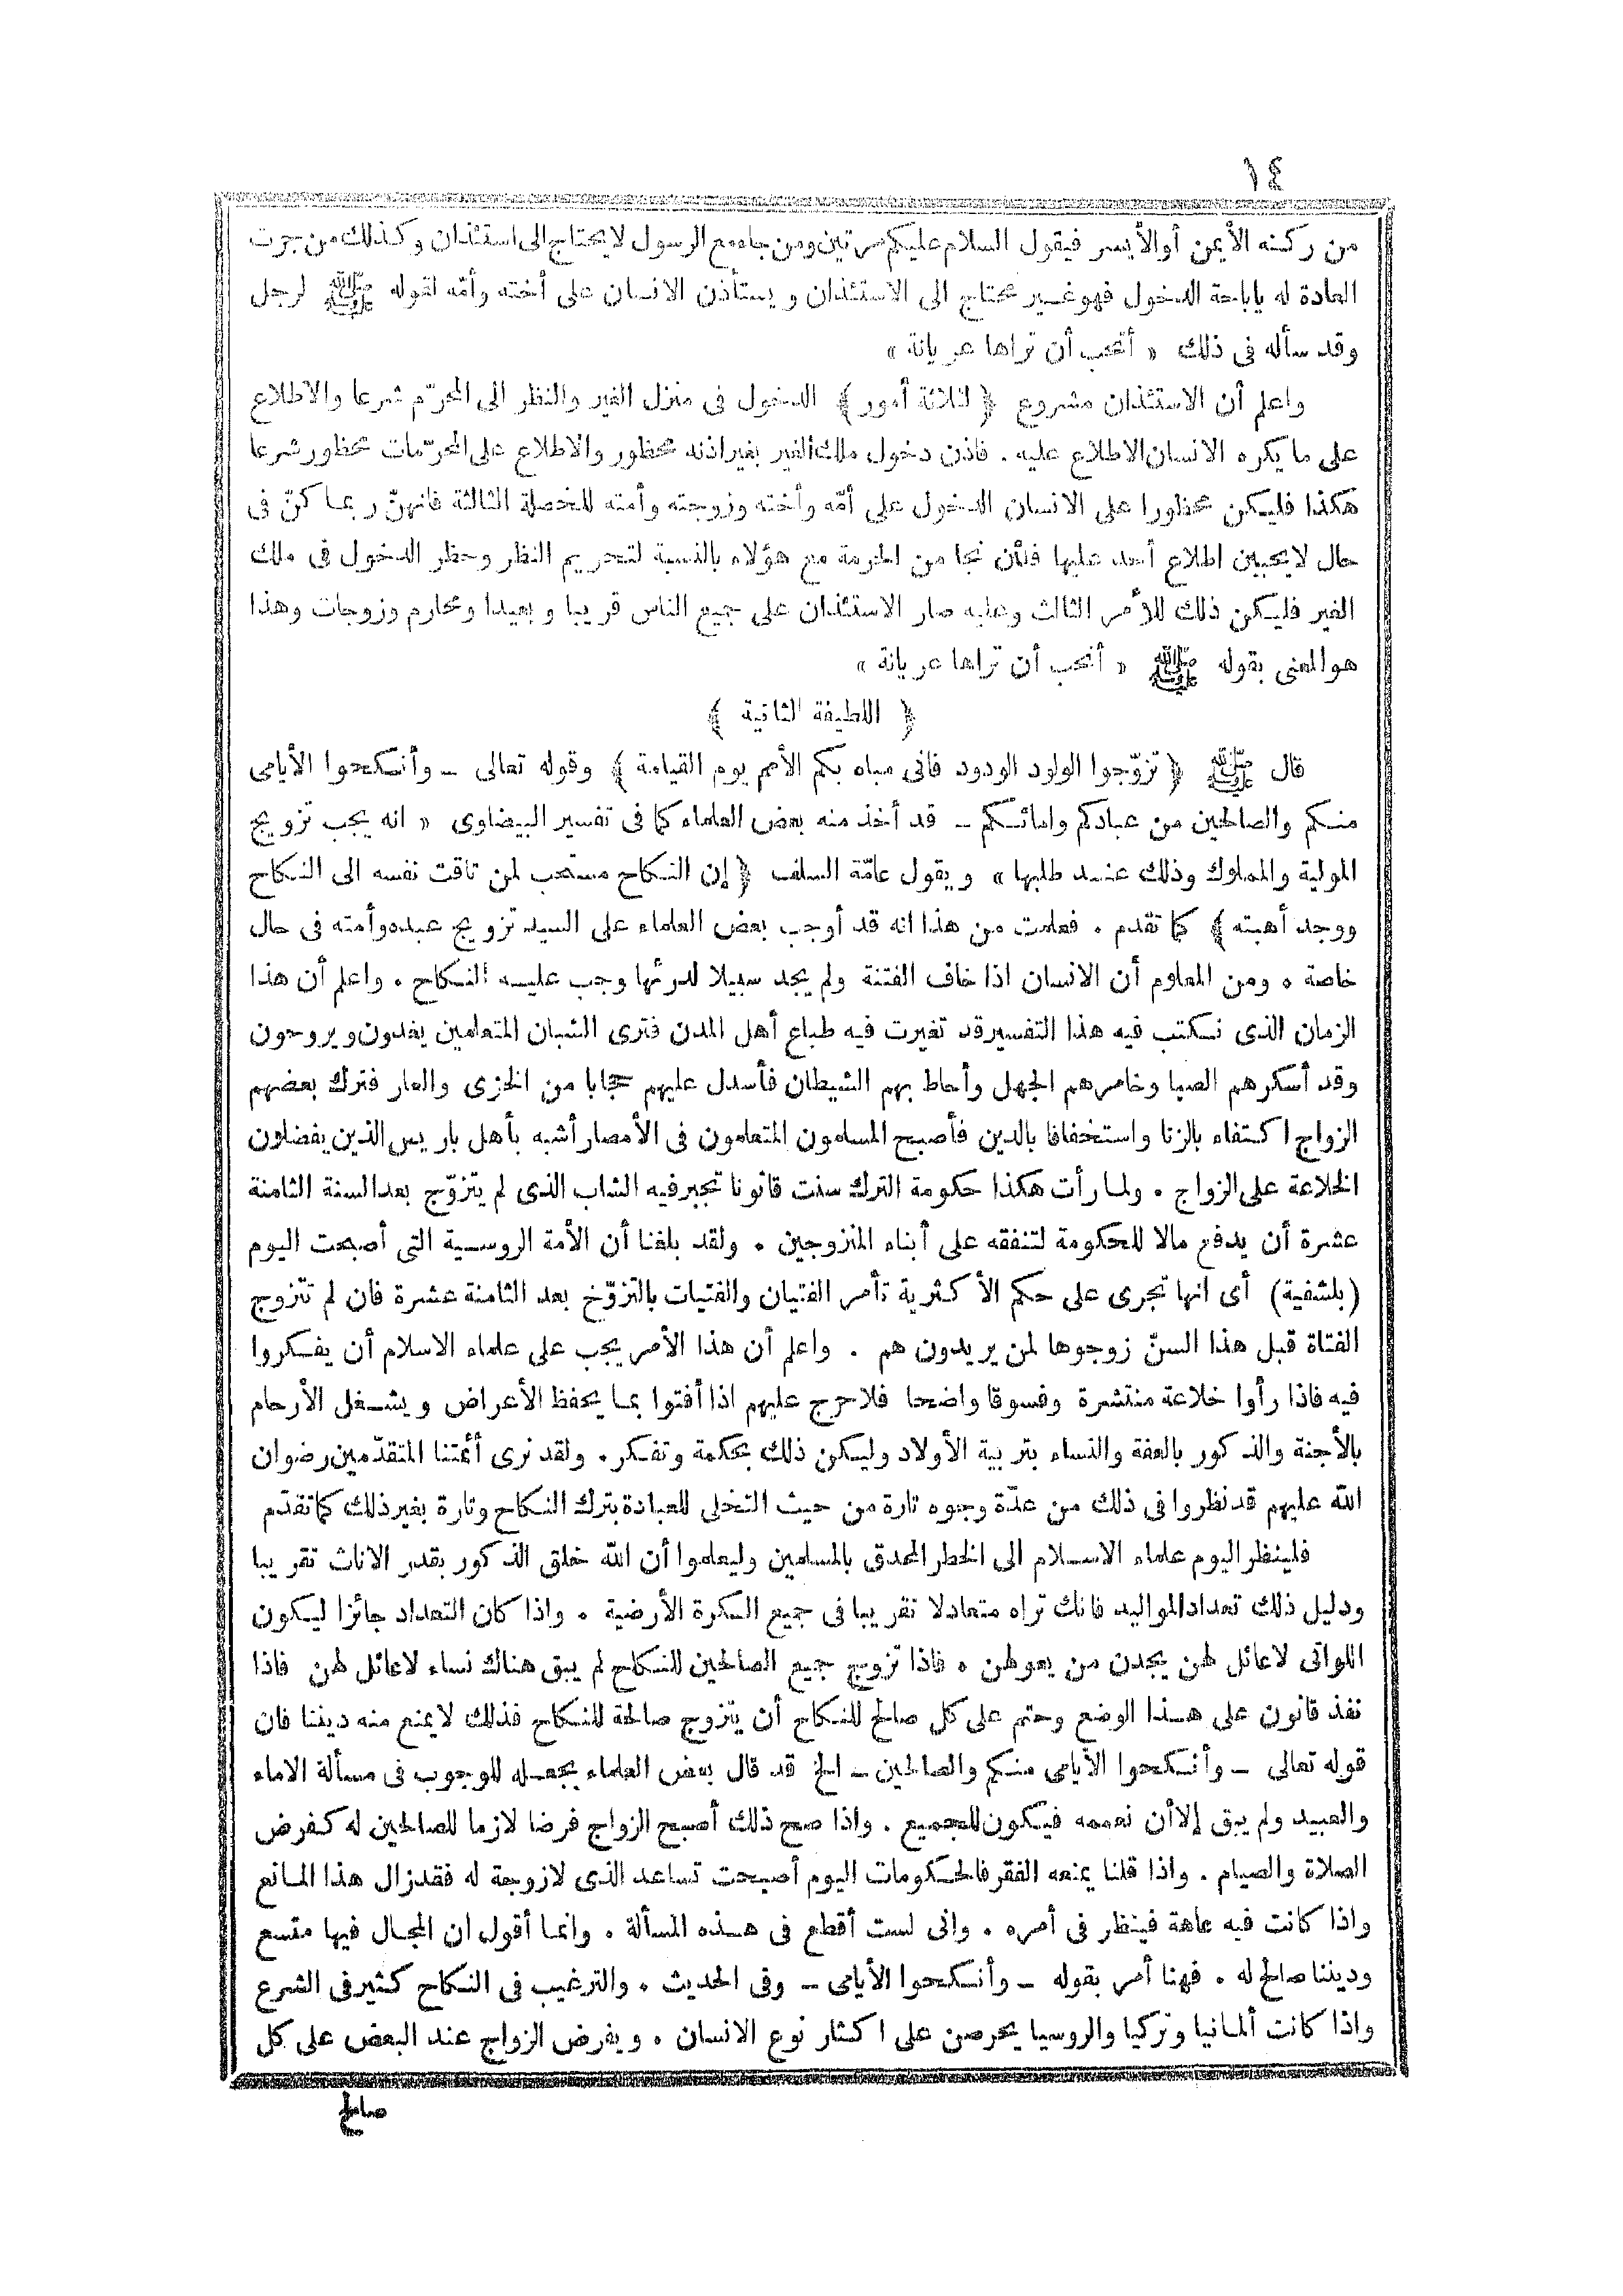 ١٤
من ركنه الأيمن أوالأيسر فيقول السلام عليكم مرتين ومن جاء مع الرسول لايحتاج الى استئذان وكذلك من جرت
العادة له بإباحة الدخول فهو غير محتاج الى الاستئذان ويستأذن الانسان على أخته وأمّه لقوله ﷺ لرجل
وقد سأله فى ذلك « أتحب أن تراها عريانة »
واعلم أن الاستئذان مشروع ﴿ لثلاثة أمور ﴾ الدخول فى منزل الغير والنظر الى المحرّم شرعا والاطلاع
على ما يكره الانسان الاطلاع عليه . فاذن دخول ملك الغير بغير اذنه محظور والاطلاع على المحرّمات محظور شرعا
هكذا فليكن محظورا على الانسان الدخول على أمّه وأخته وزوجته وأمته للخصلة الثالثة فانهنّ ربما كنّ فى
حال لايحببن اطلاع أحد عليها فلئن نجا من الحرمة مع هؤلاء بالنسبة لتحريم النظر وحظر الدخول فى ملك
الغير فليكن ذلك للأمر الثالث وعليه صار الاستئذان على جميع الناس قريبا وبعيدا ومحارم وزوجات وهذا
هو المعنى بقوله ﷺ « أتحب أن تراها عريانة »
﴿ اللطيفة الثانية ﴾
قال ﷺ ﴿ تزوّجوا الولود الودود فانى مباه بكم الأمم يوم القيامة ﴾ وقوله تعالى ـ وأنكحوا الأيامى
منكم والصالحين من عبادكم وامائكم ـ قد أخذ منه بعض العلماء كما فى تفسير البيضاوى « انه يجب تزويج
المولية والمملوك وذلك عند طلبها » ويقول عامّة السلف ﴿ إن النكاح مستحب لمن تاقت نفسه الى النكاح
ووجد أهبته ﴾ كما تقدم . فعلمت من هذا انه قد أوجب بعض العلماء على السيد تزويج عبده وأمته فى حال
خاصة . ومن المعلوم أن الانسان اذا خاف الفتنة ولم يجد سبيلا لدرئها وجب عليه النكاح . واعلم أن هذا
الزمان الذى نكتب فيه هذا التفسير قد تغيرت فيه طباع أهل المدن فترى الشبان المتعلمين يغدون ويروحون
وقد أسكرهم الصبا وخامرهم الجهل وأحاط بهم الشيطان فأسدل عليهم حجابا من الخزى والعار فترك بعضهم
الزواج اكتفاء بالزنا واستخفافا بالدين فأصبح المسلمون المتعلمون فى الأمصار أشبه بأهل باريس الذين يفضلون
الخلاعة على الزواج . ولما رأت هكذا حكومة الترك سنت قانونا تجبر فيه الشاب الذى لم يتزوّج بعد السنة الثامنة
عشرة أن يدفع مالا للحكومة لتنفقه على أبناء المتزوجين . ولقد بلغنا أن الأمة الروسية التى أصبحت اليوم
(بلشفية) أى انها تجرى على حكم الأكثرية تأمر الفتيان والفتيات بالتزوّج بعد الثامنة عشرة فان لم تتزوج
الفتاة قبل هذا السنّ زوجوها لمن يريدون هم . واعلم أن هذا الأمر يجب على علماء الاسلام أن يفكروا
فيه فاذا رأوا خلاعة منتشرة وفسوقا واضحا فلا حرج عليهم اذا أفتوا بما يحفظ الأعراض ويشغل الأرحام
بالأجنة والذكور بالعفة والنساء بتربية الأولاد وليكن ذلك بحكمة وتفكر . ولقد نرى أئمتنا المتقدّمين رضوان
الله عليهم قد نظروا فى ذلك من عدّة وجوه تارة من حيث التخلى للعبادة بترك النكاح وتارة بغير ذلك كما تقدّم
فلينظر اليوم علماء الاسلام الى الخطر المحدق بالمسلمين وليعلموا أن الله خلق الذكور بقدر الاناث تقريبا
ودليل ذلك تعداد المواليد فانك تراه متعادلا تقريبا فى جميع الكرة الأرضية . واذا كان التعداد جائزا ليكون
اللواتى لاعائل لهن يجدن من يعولهن . فاذا تزوج جميع الصالحين للنكاح لم يبق هناك نساء لاعائل لهن فاذا
نفذ قانون على هذا الوضع وحتم على كل صالح للنكاح أن يتزوج صالحة للنكاح فذلك لايمنع منه ديننا فان
قوله تعالى ـ وأنكحوا الأيامى منكم والصالحين ـ الخ قد قال بعض العلماء بجعله للوجوب فى مسألة الاماء
والعبيد ولم يبق إلا أن نعممه فيكون للجميع . واذا صح ذلك أصبح الزواج فرضا لازما للصالحين له كفرض
الصلاة والصيام . واذا قلنا يمنعه الفقر فالحكومات اليوم أصبحت تساعد الذى لازوجة له فقد زال هذا المانع
واذا كانت فيه عاهة فينظر فى أمره . وانى لست أقطع فى هذه المسألة . وانما أقول ان المجال فيها متسع
وديننا صالح له . فهنا أمر بقوله ـ وأنكحوا الأيامى ـ وفى الحديث . والترغيب فى النكاح كثير فى الشرع
واذا كانت ألمانيا وتركيا والروسيا يحرصن على اكثار نوع الانسان . ويفرض الزواج عند البعض على كل
صالح